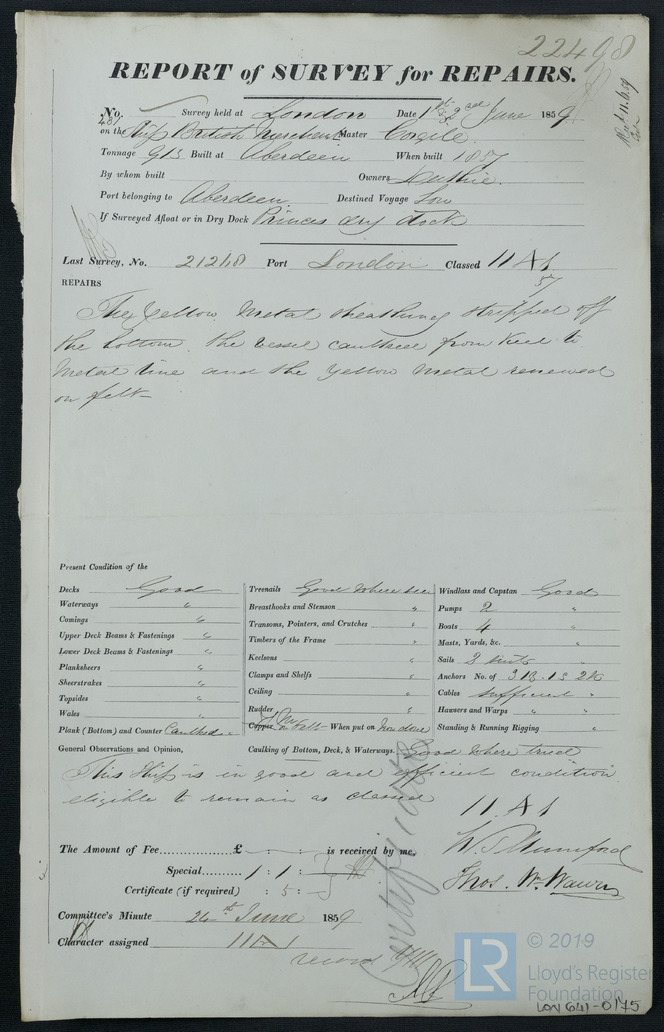 22498
REPORT of SURVEY for REPAIRS.
No. Survey held at London Date 1st June 1859
on the Ship British Merchant Master
Tonnage 915 Built at Aberdeen When built 1857
By whom built Owners Duthie.
Port belonging to Aberdeen Destined Voyage
If Surveyed Afloat or in Dry Dock Princes dry dock
Last Survey, No. 21248 Port London Classed 11 A 1
57
REPAIRS
The Yellow Metal sheathing stripped off
the bottom. the vessel caulked from Keel to
Metal line and the Yellow Metal renewed
on felt
Present Condition of the
Decks Good
Waterways "
Comings "
Upper Deck Beams & Fastenings "
Lower Deck Beams & Fastenings "
Planksheers "
Sheerstrakes "
Topsides "
Wales "
Plank (Bottom) and Counter Caulked
Treenails Good where seen
Breasthooks and Stemson "
Transoms, Pointers, and Crutches "
Timbers of the Frame "
Keelsons "
Clamps and Shelfs "
Ceiling "
Rudder "
Y. M.
Copper on Felt When put on Now done
Windlass and Capstan Good
Pumps 2 "
Boats 4 "
Masts, Yards, &c. "
Sails 2 suits "
Anchors No. of 3 B. 1 S 2 K
Cables sufficient "
Hawsers and Warps " "
Standing & Running Rigging "
General Observations and Opinion, Caulking of Bottom, Deck, & Waterways. Good where tried
This Ship is in good and efficient condition
eligible to remain as classed
11 A 1
The Amount of Fee £ - : - : - is received by me,
Special 1 : 1 :
Certificate (if required) : 5 : -
W. S. Mumford
Thos. Wm. Wawn
Certificate
Committee's Minute 24th June 1859
Character assigned 11 A 1
record YM
LR © 2019
Lloyd's Register
Foundation
LON 641-0145